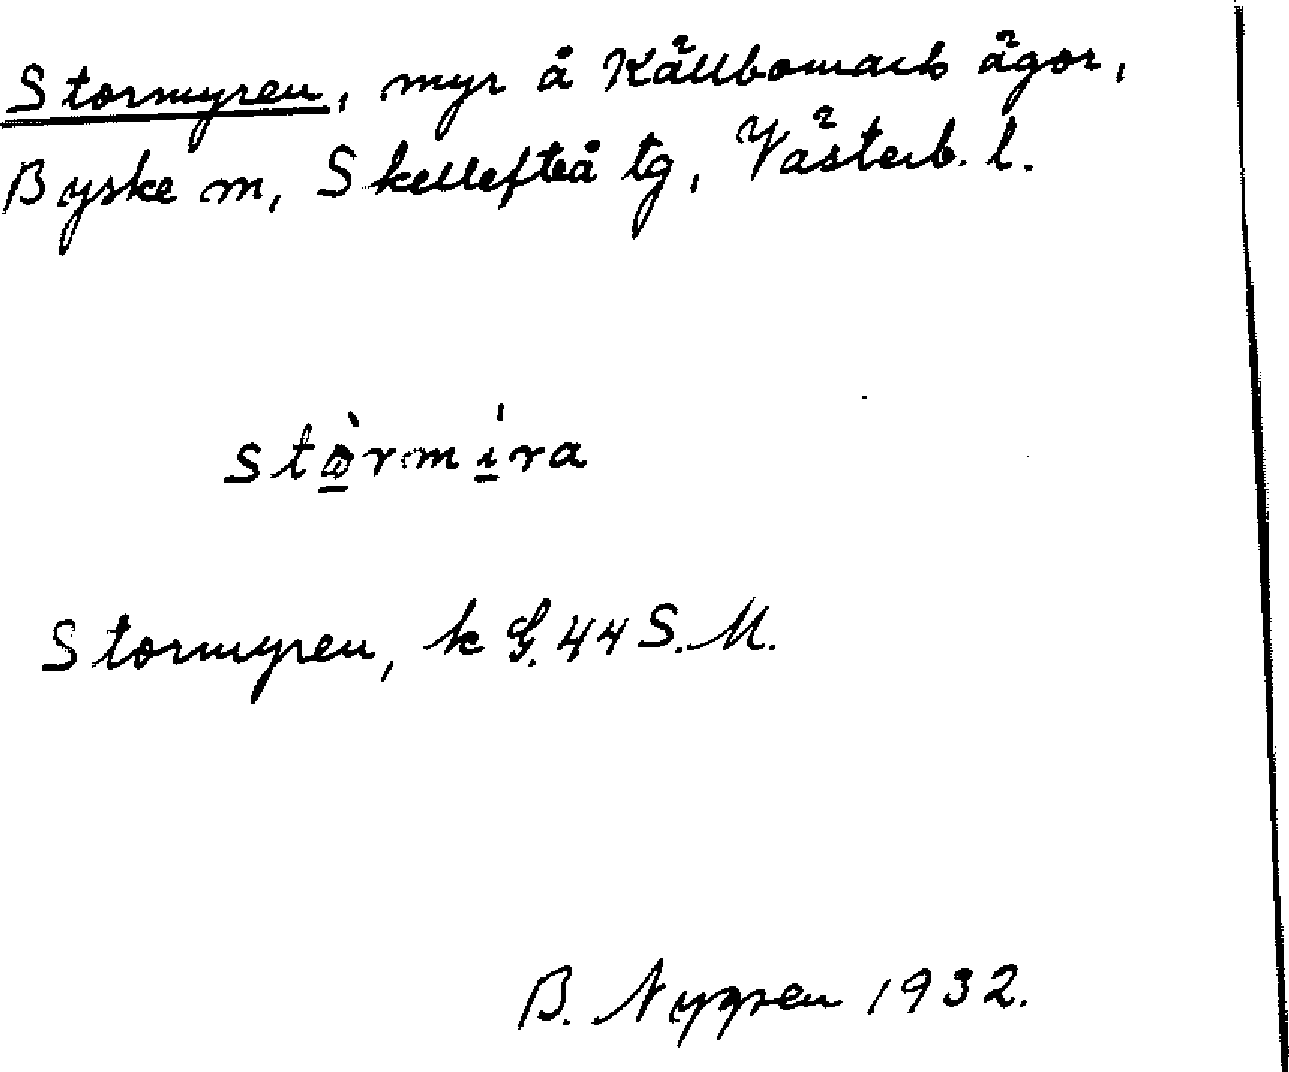 Stormyren, myr å Källbomark ägor,
Byske sn, Skellefteå tg, Västerb. l.
stòrmíra
Stormyren, k G. 44 S.M.
B. Nygren 1932.